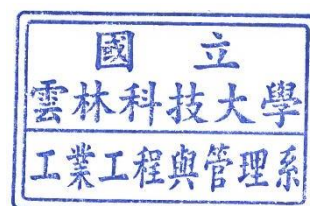 國立
雲林科技大學
工業工程與管理系